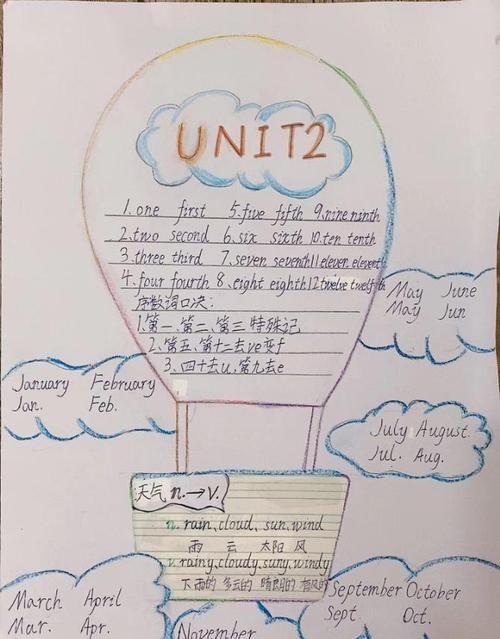 UNIT2
1. one first 5. five fifth 9. nine ninth
2. two second 6. six sixth 10. ten tenth
3. three third 7. seven seventh 11 eleven eleventh
4. four fourth 8. eight eighth 12 twelve twelfth
序数词口决:
1.第一、第二、第三特殊记
2.第五、第十二去ve变f
3.四十去u,第九去e
May June
May Jun
January February
Jan. Feb.
July August.
Jul. Aug.
天气 n.→v.
n. rain, cloud, sun, wind
雨 云 太阳 风
v. rainy, cloudy, suny, windy
下雨的 多云的 晴朗的 有风的
March April
Mar. Apr.
September October
Sept. Oct.
November